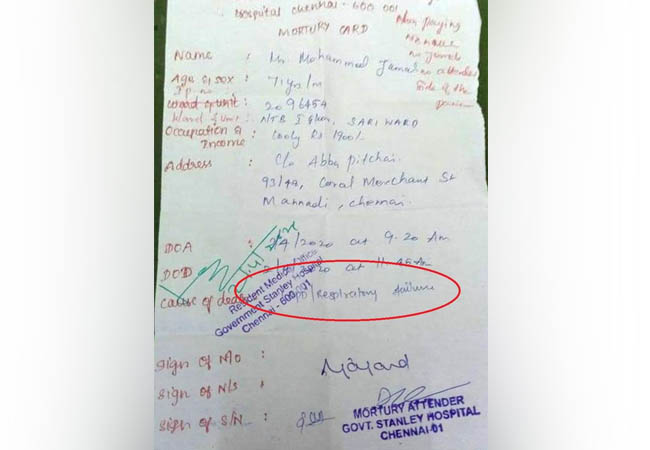 Hospital Chennai-600 001
MORTURY CARD
Non paying
no attender
side of the
Name : Mr. Mohammed Jamal
Age & sex : 71 yrs/m
Ip no : 2096454
Ward & unit
Ward & unit : NTB I floor, SARI WARD
Occupation &
Income : Cooly Rs 1900/-
Address : C/o Abba Pitchai
93/49, Coral Merchant St
Mannadi, Chennai
DOA : 2/4/2020 at 9.20 Am
DOD : 2/ 2020 at 11.45 Am
Cause of death Respiratory failure
Resident Medical Officer
Government Stanley Hospital
Chennai - 600 001
Sign of M/O :
Sign of N/S :
Sign of S/N :
MORTURY ATTENDER
GOVT. STANLEY HOSPITAL
CHENNAI-01